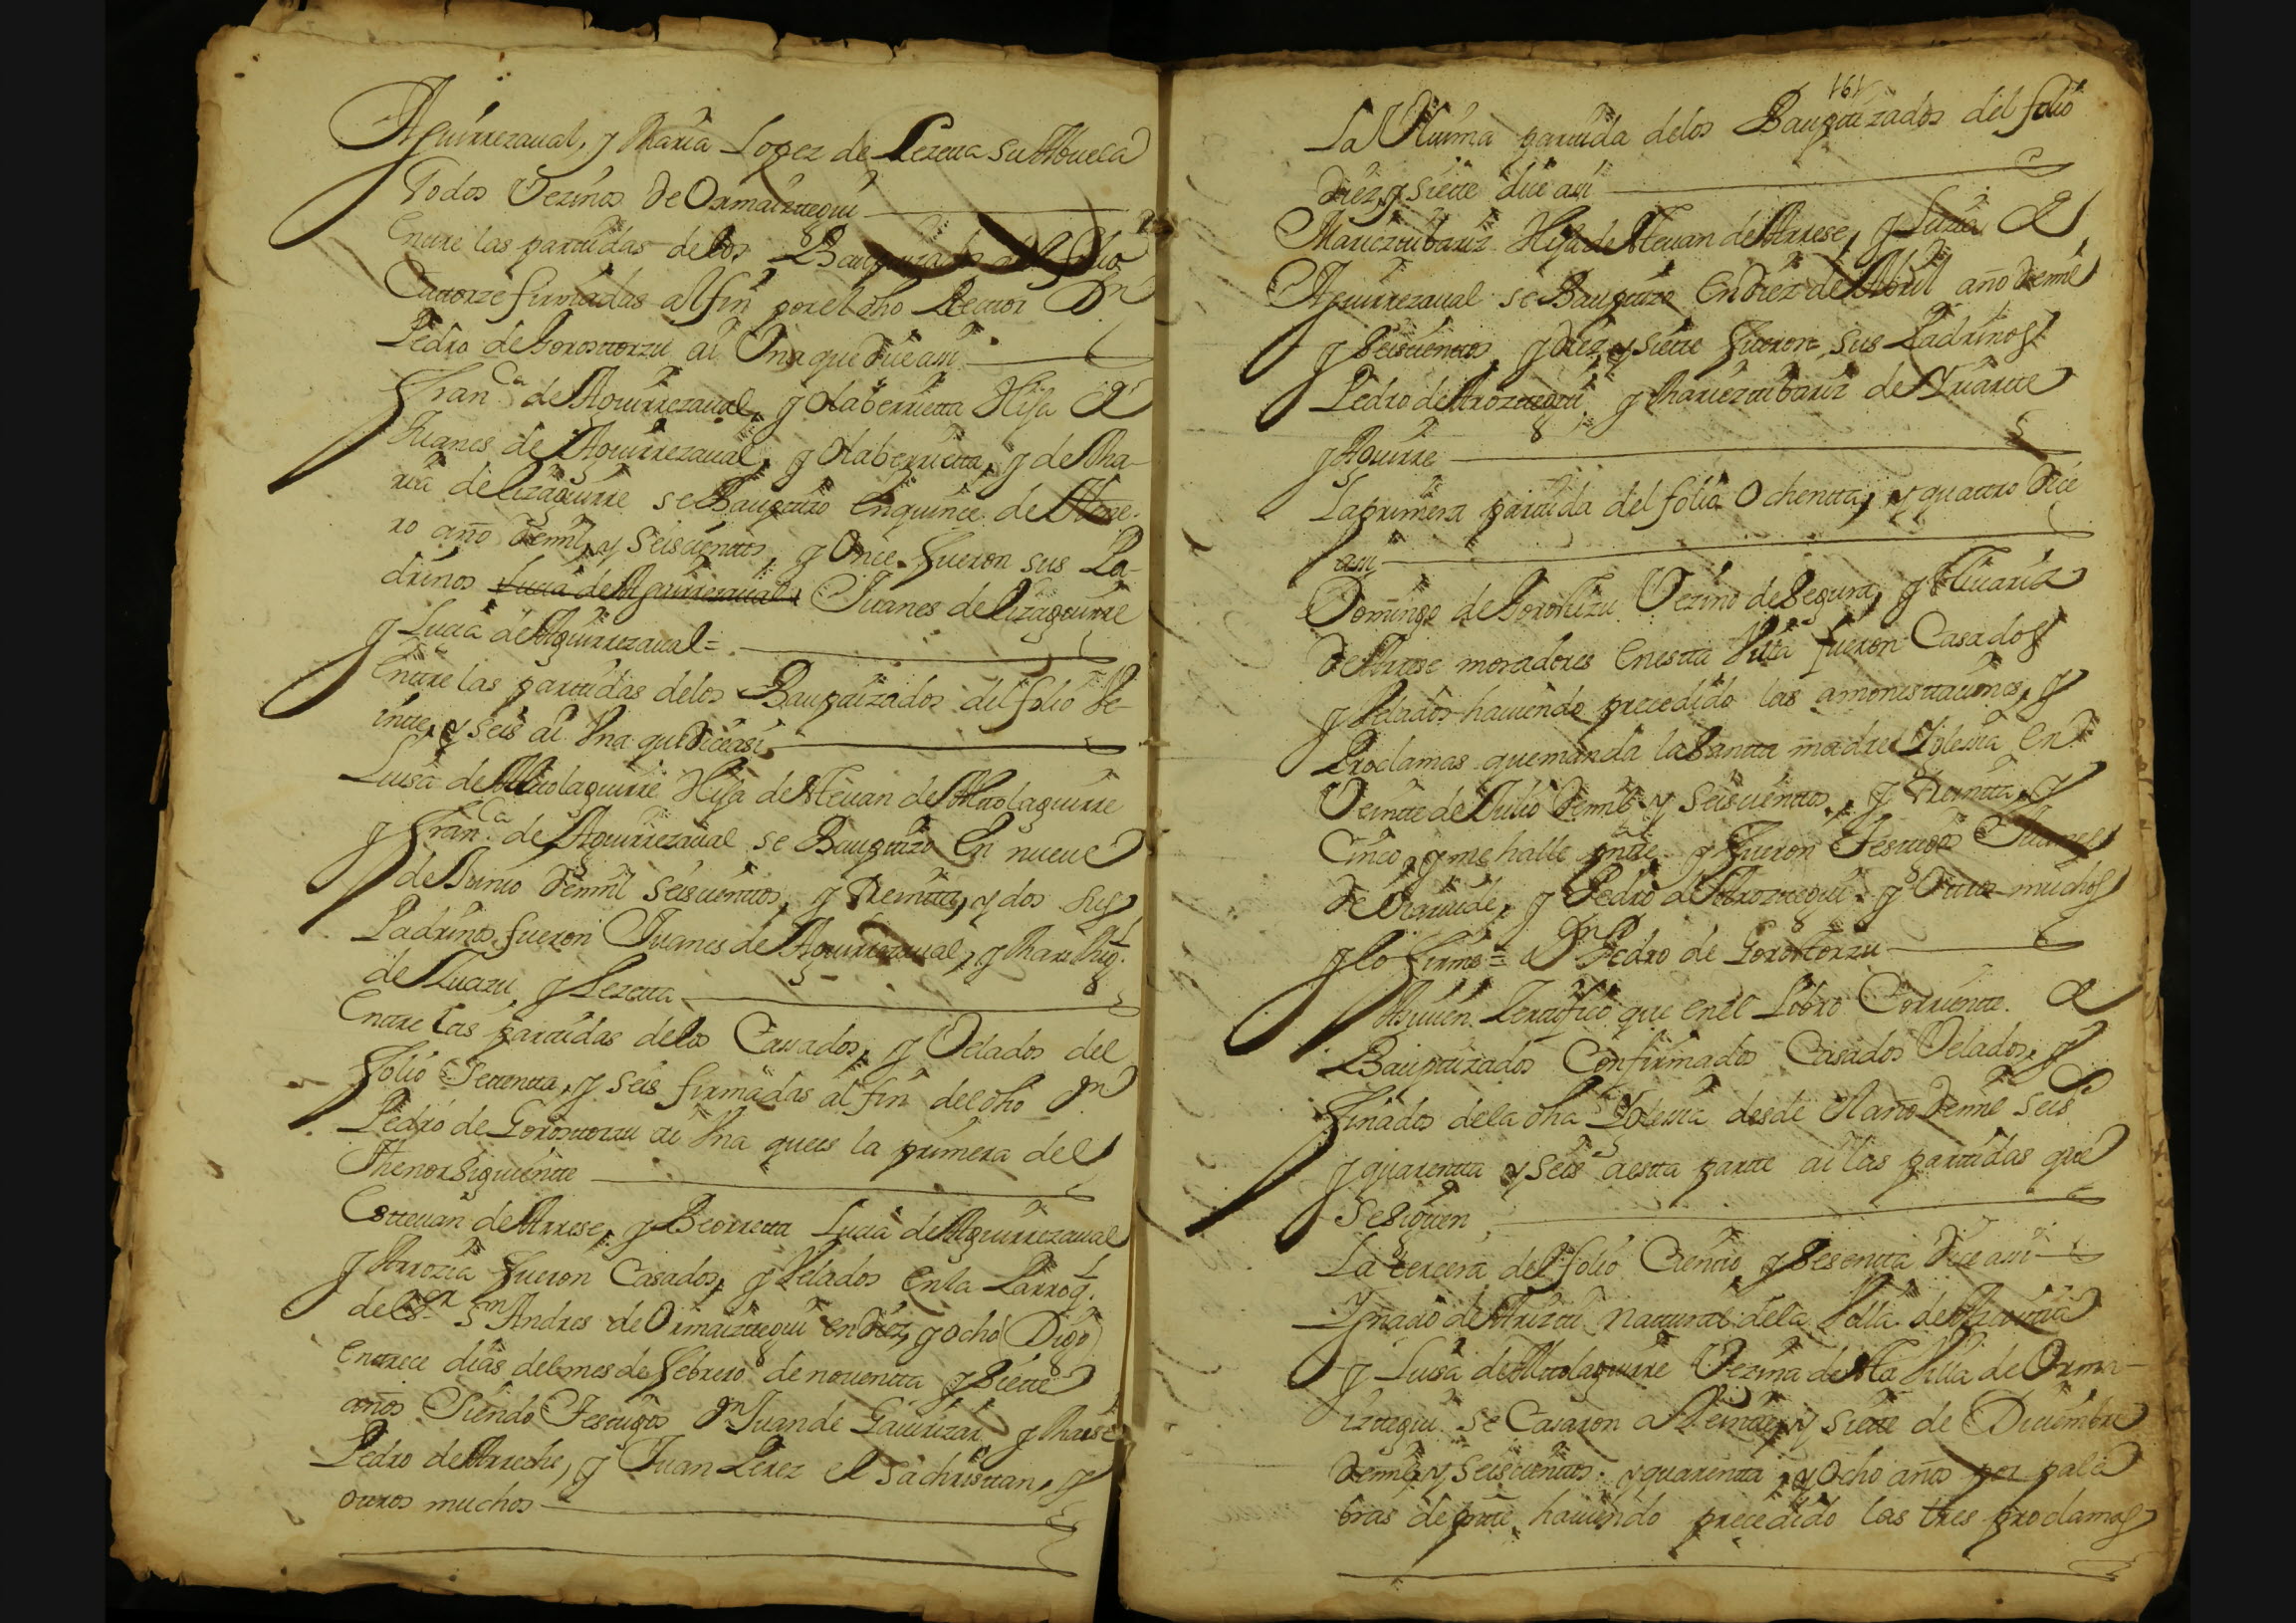 Aguirrezaual, y Maria Lopez de Lezetta su Abuela
Todos Vezinos de Ormaizttegui
Enttre las parttidas de los Bauptizados del folio
Cattorze firmadas al fin por el dho Recttor Dn
Pedro de Gorosttorzu ai Vna que dice asi
Franca de Aguirrezaual, y Olaberrietta Hija de
Juanes de Aguirrezaual, y Olaberrietta, y de Ma-
ria de lizaguirre se Bauptizo en quince de Hene-
ro año de mil, y seiscienttos, y Once fueron sus Pa-
drinos Lucia de Aguirrezaual Juanes de lizaguirre
y Lucia de Aguirrezaual=
Enttre las parttidas delos Bauptizados del folio Ve-
intte, y seis ai Vna que dice asi
Luisa de Alttolaguirre Hija de Esteuan de Alttolaguirre
y Franca de Aguirrezaual se Bauptizo en nueue
de Junio de mil seiscienttos, y Treintta, y dos sus
Padrinos fueron Juanes de Aguirrezaual, y Mari
de y Lezetta
Enttre las parttidas delos Cassados, y Velados del
folio Settentta, y seis firmadas al fin del dho Dn
Pedro de Gorosttorzu ai Vna que es la primera del
Thenor siguientte
Estteuan de Arrese, y Beorretta Lucia de Aguirrezaual
y Arrozia fueron Casados, y Velados en la Parroql
de Sr Sn Andres de Ormaizttegui en diez, y ocho (Digo)
en trece dias del mes de febrero de nouentta y Siette
años Siendo Testtigos Dn Juan de Gauirizar y Maese
Pedro de Arreche, y Juan Perez el Sachristtan, y
ottros muchos
161
La Vlttima parttida delos Bauptizados del folio
diez, y siette dice asi
Hija de Esteuan de Arrese, y Luzia de
Aguirrezaual se Bauptizo en diez de Abril año de mil
y Seiscienttos, y diez, y siette fueron sus Padrinos
Pedro de Arozttegui y de Yriartte
y Aguirre
La primera parttida del folio Ochentta, y quattro dice
asi
Domingo de Gorostizu Vezino de Segura, y Maria
de Arrese moradores en estta Villa fueron Casados
y Velados hauiendo precedido las amonesttaciones, y
Proclamas que manda la Santta madre Iglesia en
Veintte de Julio de mil, y seiscienttos, y Treintta, y
Cinco, y me halle pntte y fueron Testtigos Juanes
de y Pedro de Arozttegui y Ottros muchos
y lo firme= Dn Pedro de Gorostorzu
Assi bien Zerttifico que en el Libro Corrientte de
Bauptizados Confirmados Casados Velados, y
finados dela dha Iglesia desde el año de mil seis
y quarentta y seis a estta partte ai las parttidas que
se siguen
La tercera del folio Cientto, y Sesentta dice asi
Ygnacio de Ariztti Natturál dela Villa de
y Luisa de Alttolaguirre Vezina de esta Villa de Orma-
izttegui se Casaron a Veintte, y siette de Diciembre
de mil, y seiscienttos, y quarentta, y Ocho años por pala
bras de pntte, hauiendo precedido las tres proclamas